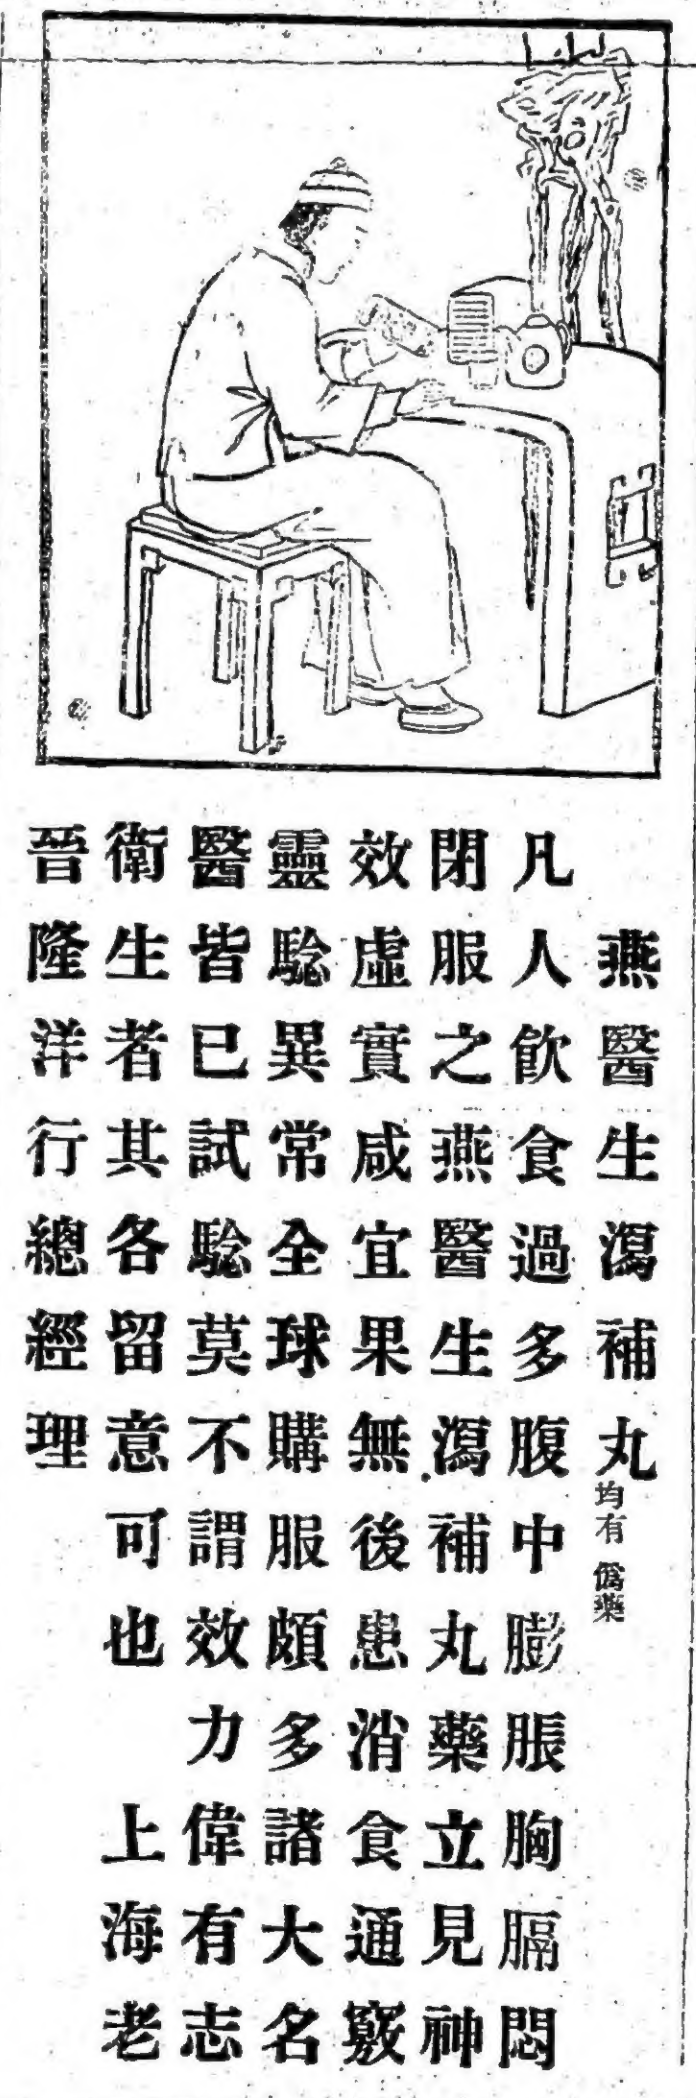 燕醫生瀉補丸均有僞藥
凡人飲食過多腹中膨脹胸膈悶
閉服之燕醫生瀉補丸藥立見神
效虛實咸宜果無後患消食通竅
靈騐異常全球購服頗多諸大名
醫皆已試騐莫不謂效力偉有志
衛生者其各留意可也 上海老
晉隆洋行總經理